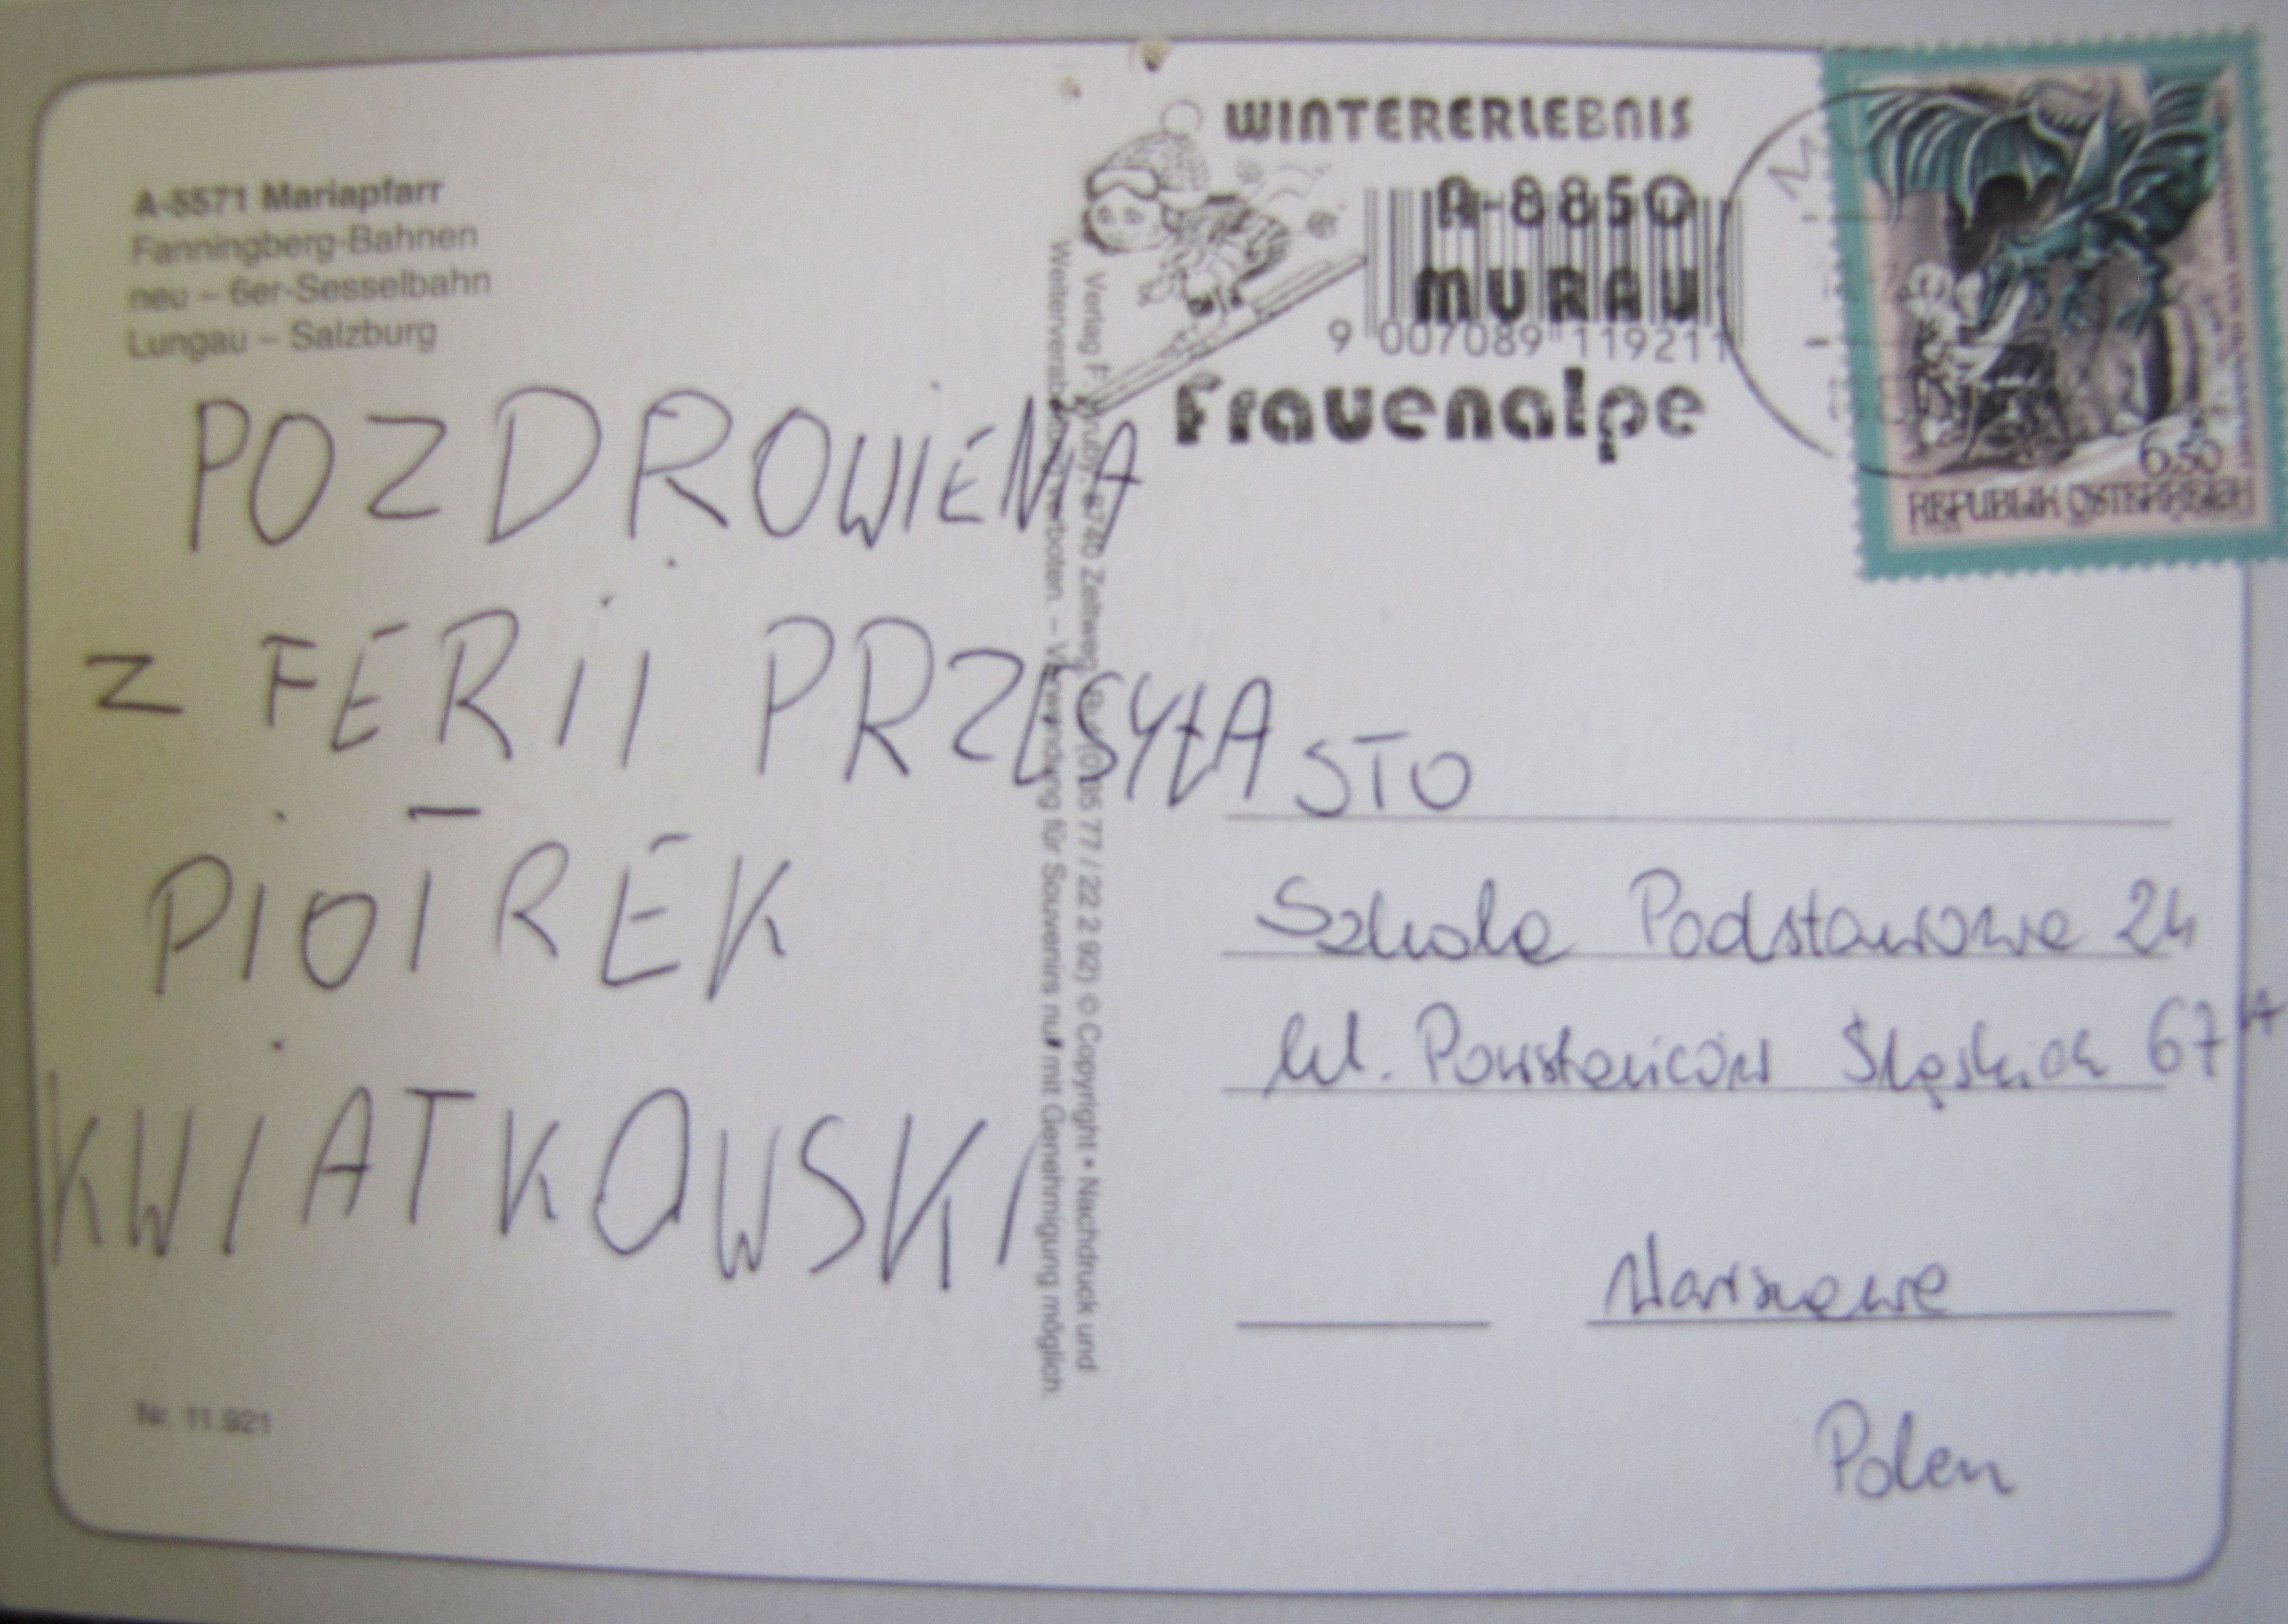 A-5571 Mariapfarr
Fanningberg-Bahnen
neu – 6er-Sesselbahn
Lungau – Salzburg
POZDROWIENA
Z FERII PRZESYŁA
PIOTREK
KWIATKOWSKI
Nr. 11.921
Verlag F. 8740 Zeltweg, 77 / 22 2 92) © Copyright • Nachdruck und
Weiterverarbeitung verboten. – Verwendung für Souvenirs nur mit Genehmigung möglich.
WINTERERLEBNIS
A-8850
MURAU
9 007089 119211
Frauenalpe
6.50
REPUBLIK ÖSTERREICH
STO
Szkoła Podstawowa 24
ul. Powstańców Śląskich 67A
Warszawa
Polen